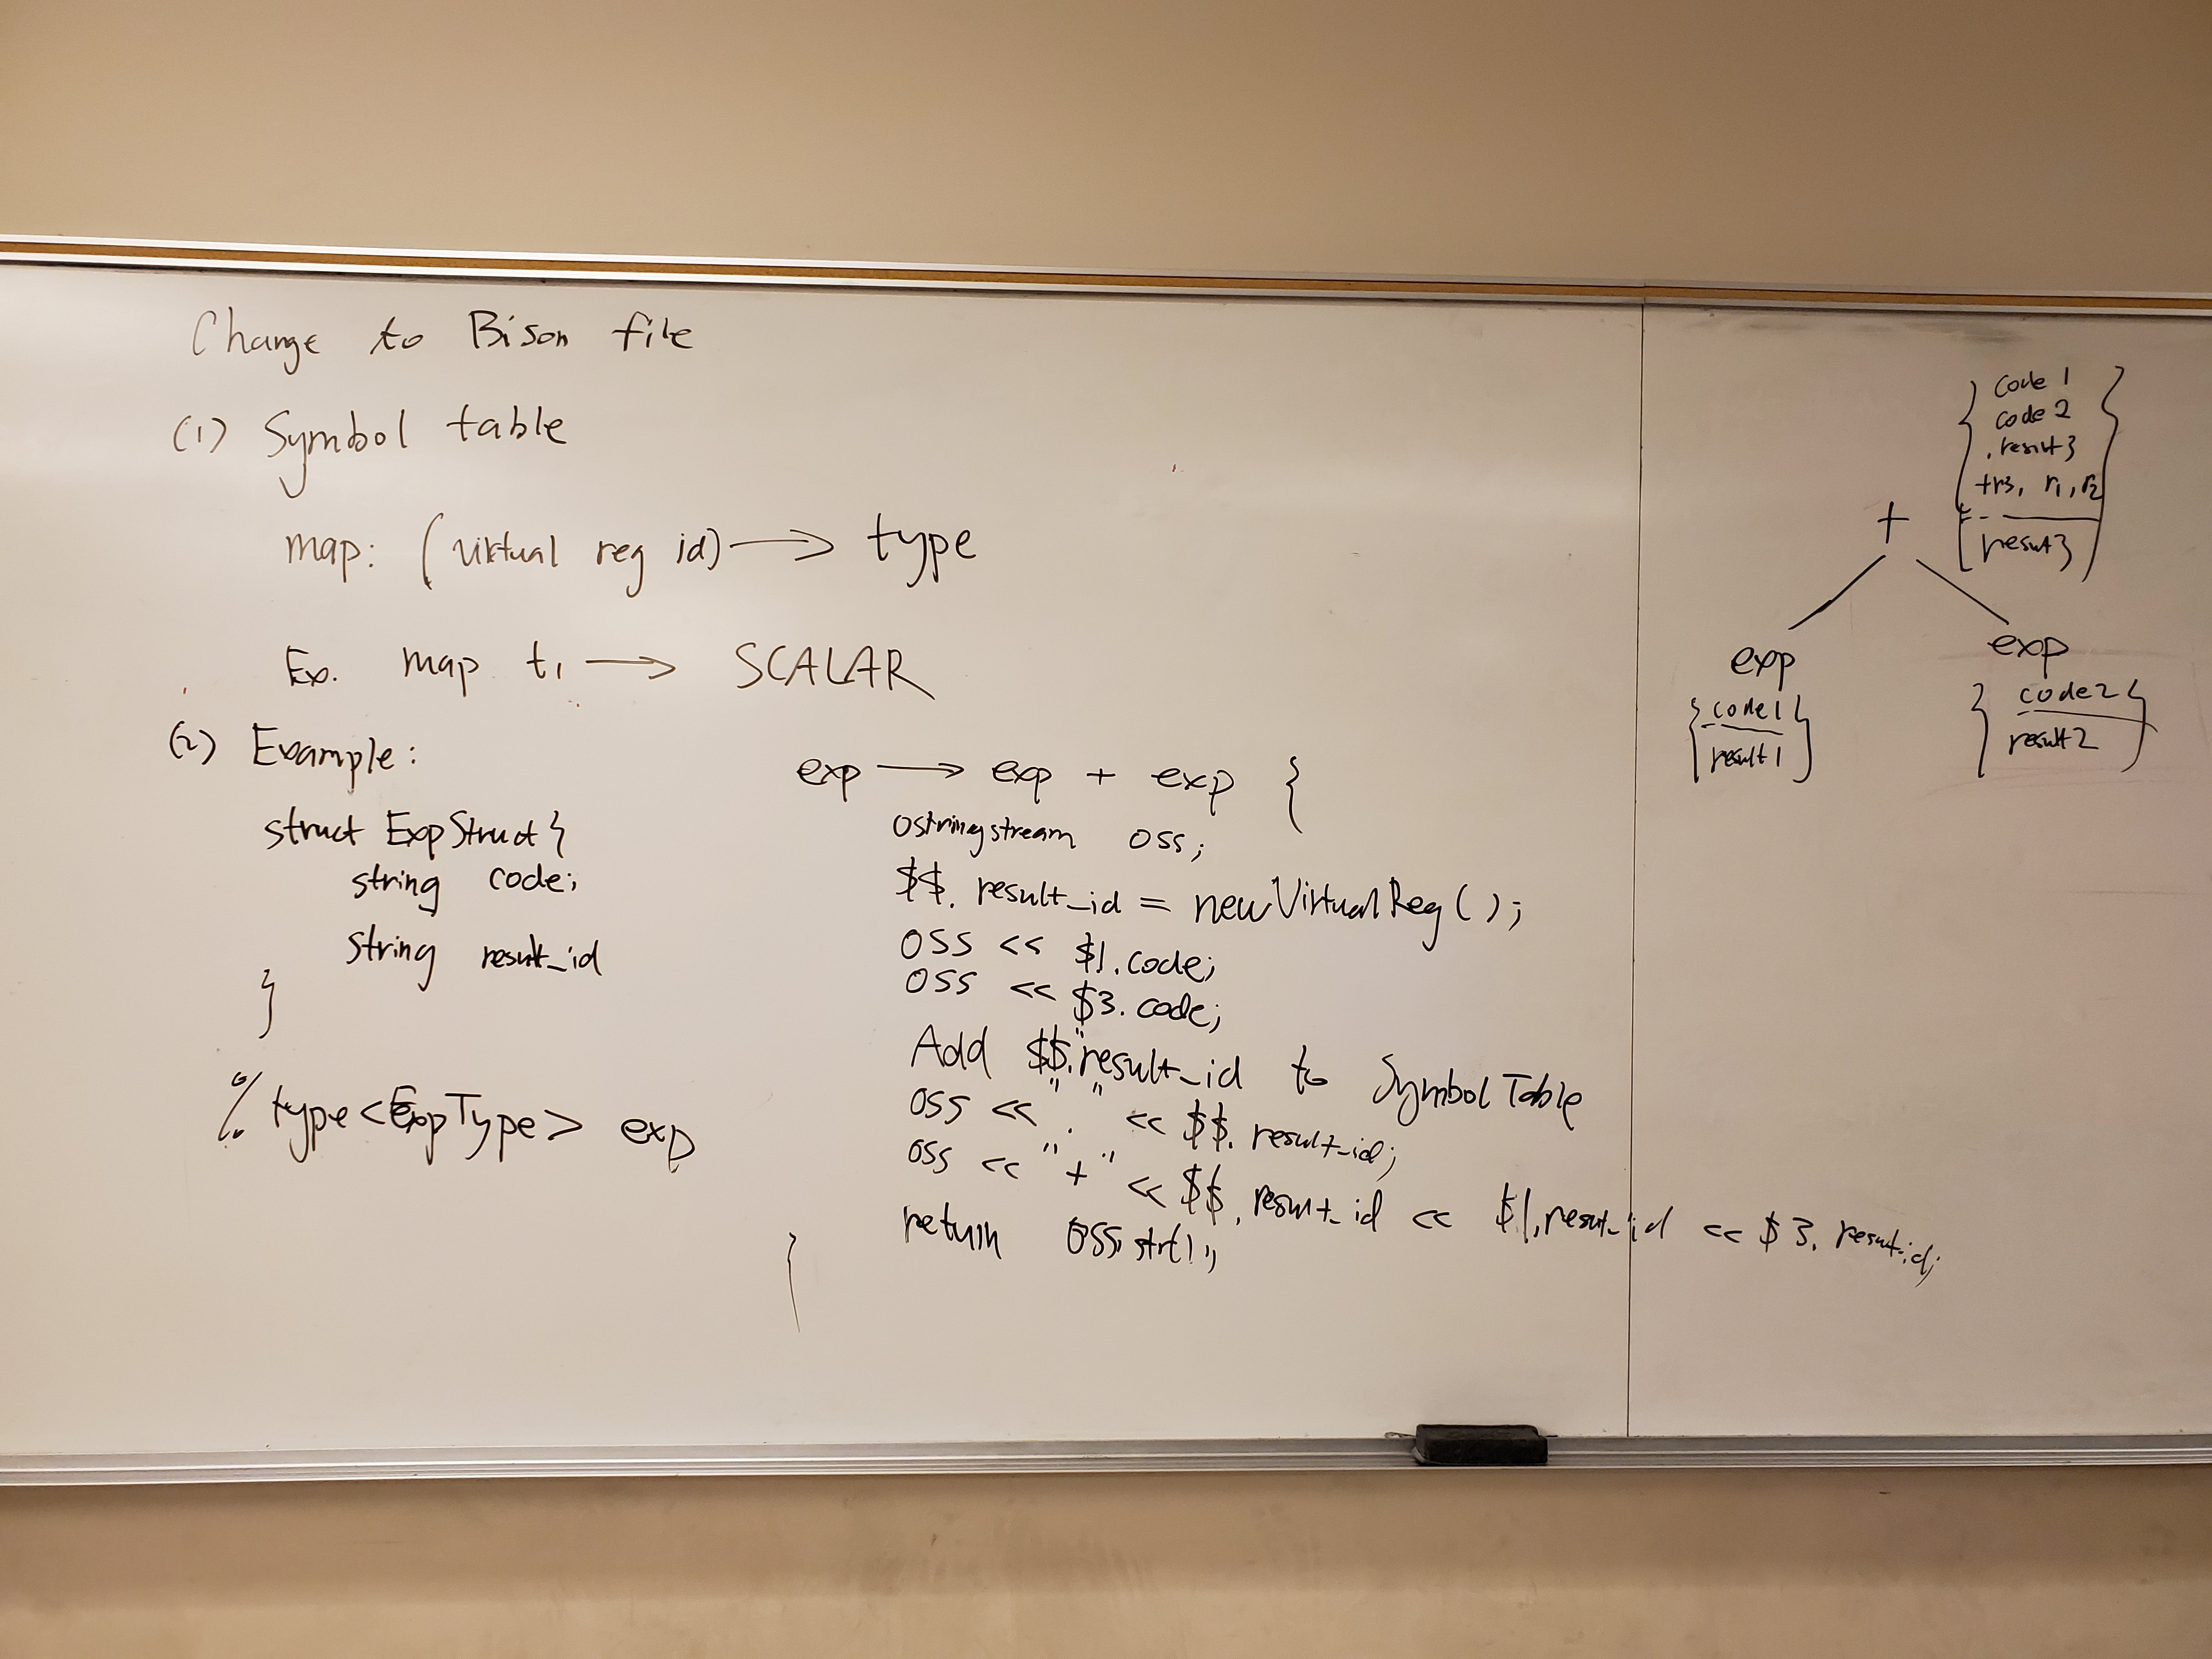 Change to Bison file
(1) Symbol table
map: (virtual reg id) → type
Ex. map t1 → SCALAR
(2) Example:
struct ExpStruct {
string code;
string result_id
}
%type <ExpType> exp
exp → exp + exp {
ostringstream oss;
$$.result_id = newVirtualReg();
oss << $1.code;
oss << $3.code;
Add $$.result_id to SymbolTable
oss << ". " << $$.result_id;
oss << "+" << $$.result_id << $1.result_id << $3.result_id;
return oss.str();
}
{ code 1 }
code 2
. result3
+ r3, r1, r2
result3
+
exp
exp
{ code1 }
result1
{ code2 }
result2